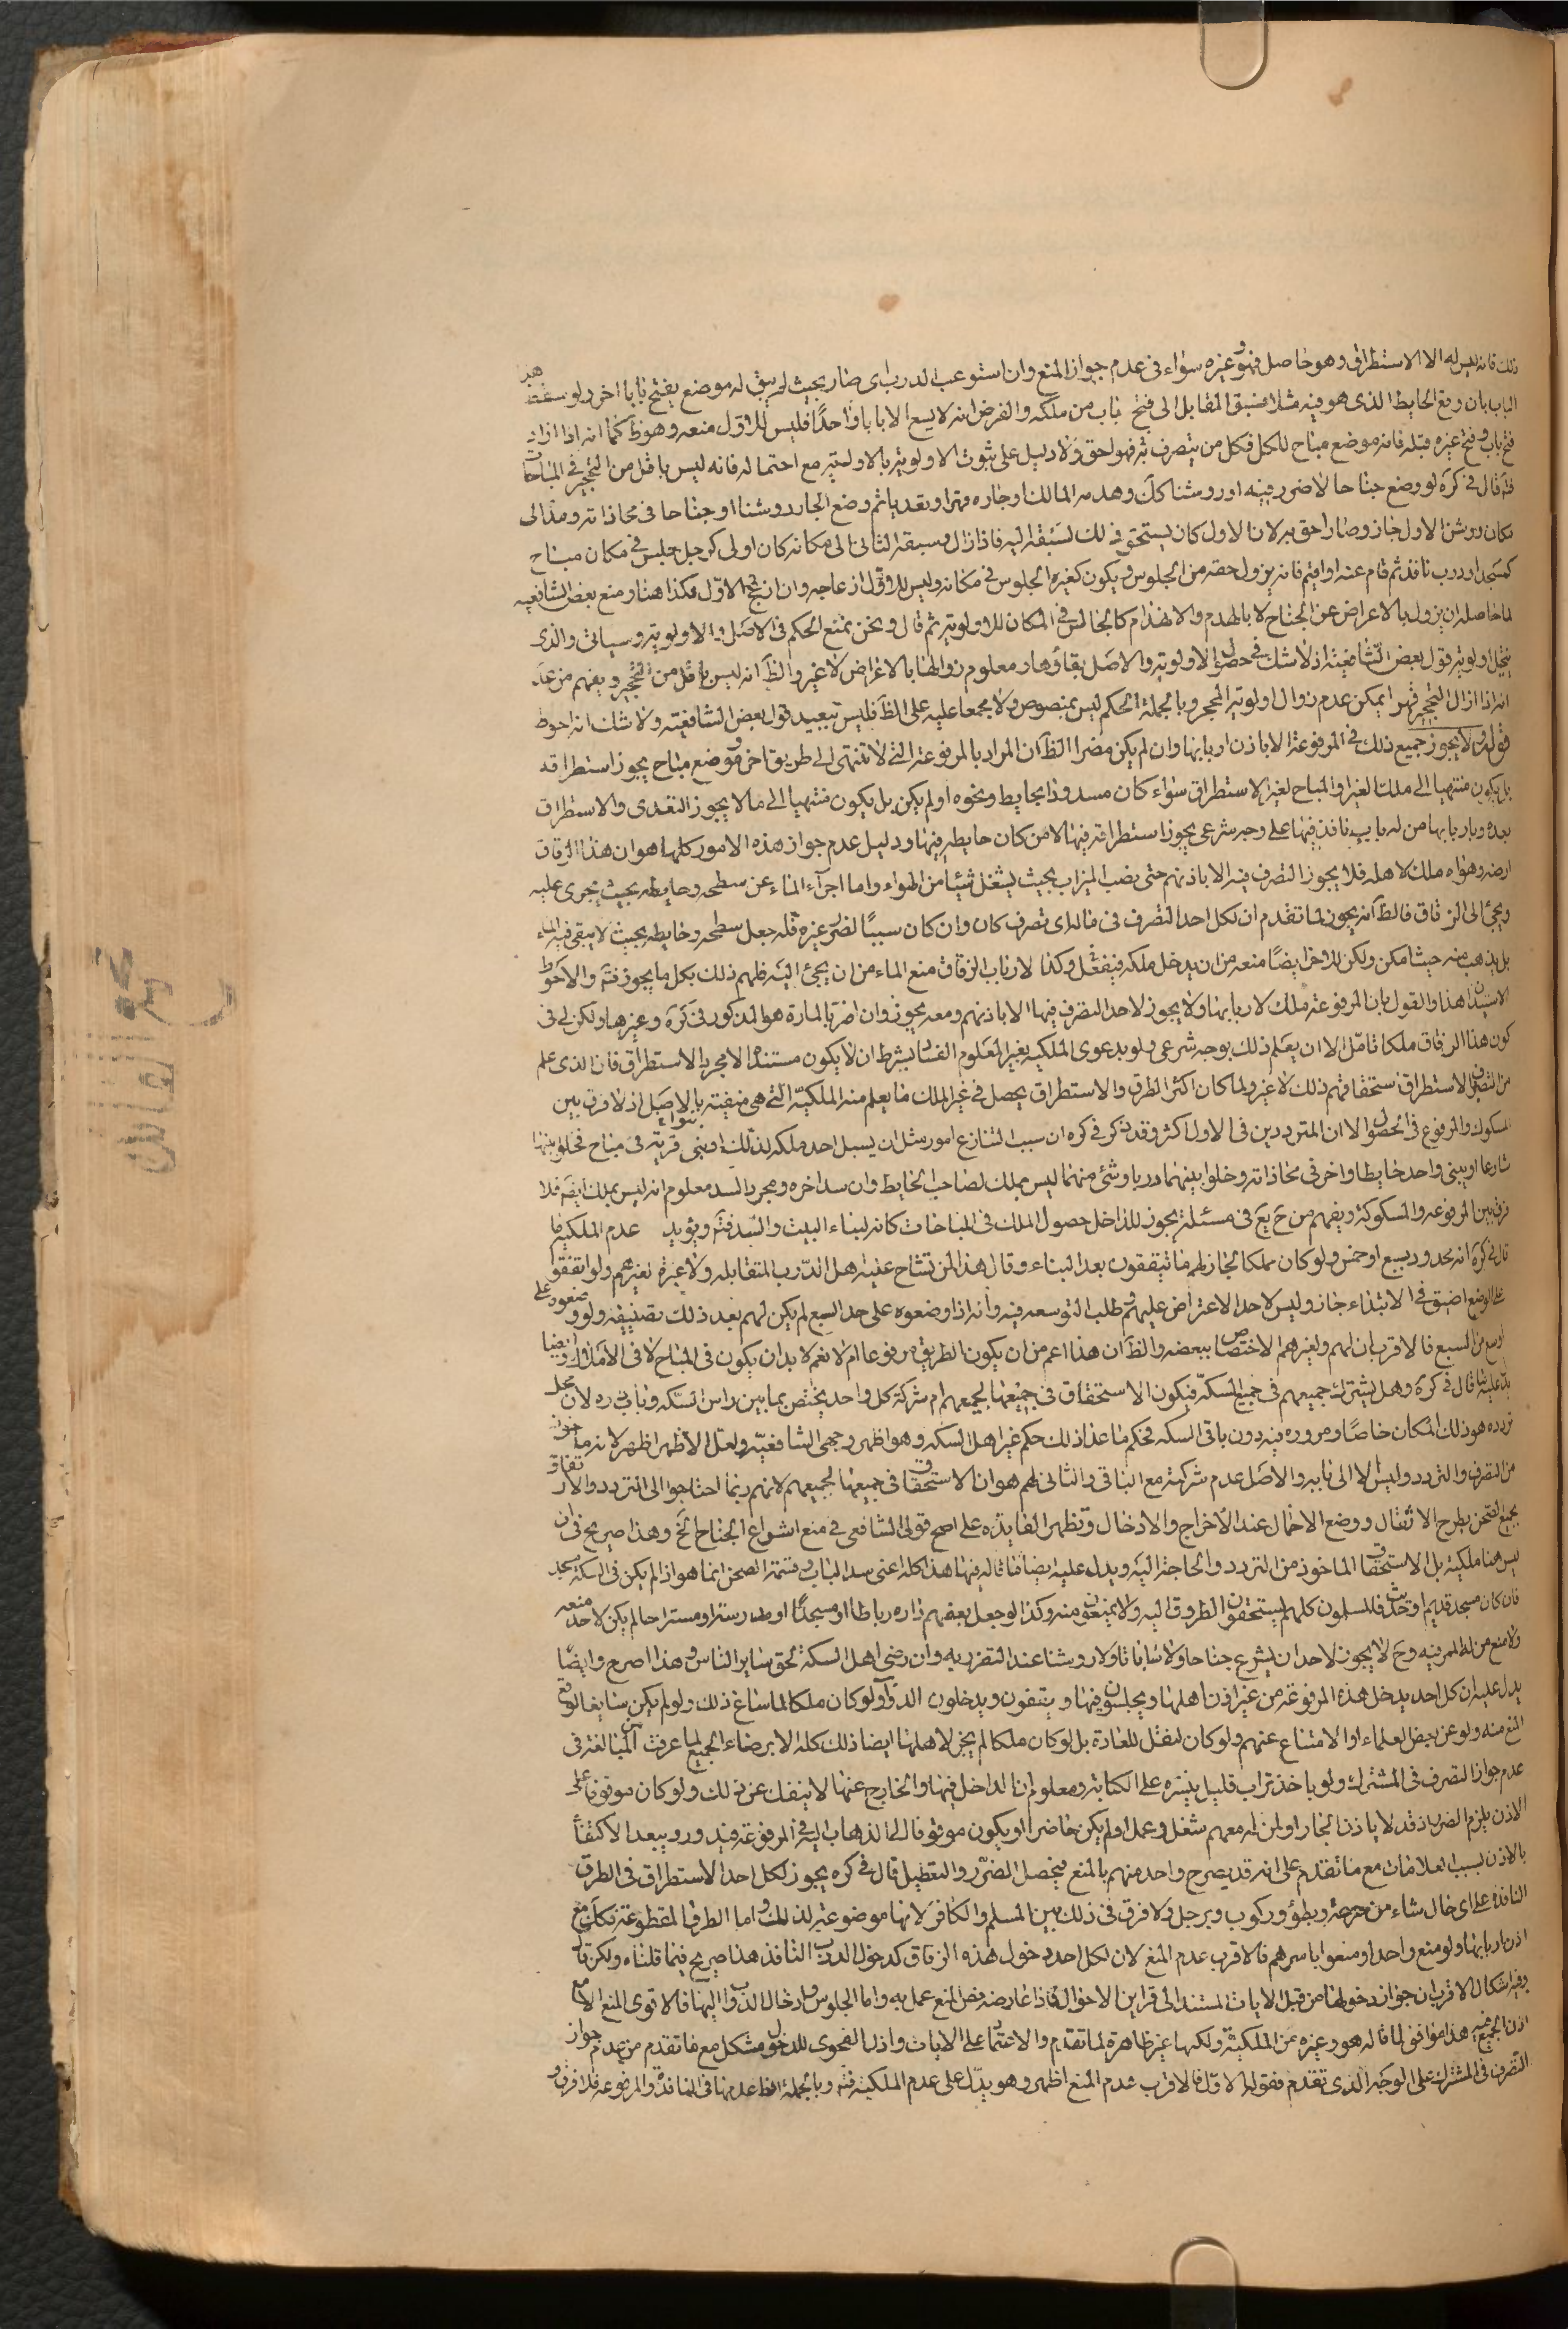 ذلك فانه ليس له الا الاستطراق وهو حاصل فهو وغيره سواء فى عدم جواز المنع وان استوعب الدرب اى صار بحيث لم يبق له موضع يفتح بابا اخر ولو سقط
الباب بان وقع الحايط الذى هو فيه مثلا فسبق المقابل الى فتح باب من ملكه والفرض انه لا يسع الا بابا واحدًا فليس للاول منعه وهو ظ كما انه اذا اراد
فتح باب وفتح غيره قبله فانه موضع مباح للكل فكل من يتصرف به فهو احق ولا دليل على ثبوت الاولوية بالاولية مع احتماله فانه ليس باقل من التحجير فى المباحات
قال فى كره لو وضع جناحا لا ضرر فيه او روشنا كك وهدمه المالك او جاره قهرا وتعديا ثم وضع الجار روشنا او جناحا فى محاذاته ومد الى
مكان روشن الاول جاز وصار احق به لان الاول كان يستحق ذلك لسبقه اليه فاذا زال وسبقه الثانى الى مكانه كان اولى كرجل جلس فى مكان مباح
كمسجد او درب نافذ ثم قام عنه او اقيم فانه يزول حقه من الجلوس ويكون لغيره الجلوس فى مكانه وليس للاول ازعاجه وان ازعج الاول فكذا هنا ومنع بعض الشافعيه
لما حاصله ان يزول بالاعراض عن الجناح لا بالهدم والانهدام كالجالس فى المكان للاولوية ثم قال ونحن نمنع الحكم فى الاصل والاولوية وسياتى والذى
يتخيل اولوية قول بعض الشافعية اذ لا شك فى حصول الاولوية والاصل بقاؤها ومعلوم زوالها بالاعراض لا غير والظ انه ليس باقل من التحجير ويفهم من عد
انه اذا ازال التحجير قهرا يمكن عدم زوال اولوية المحجر وبالجملة الحكم ليس بمنصوص ولا مجمعا عليه على الظ فليس ببعيد قول بعض الشافعية ولا شك انه احوط
قوله ولا يجوز جميع ذلك فى المرفوعة الا باذن اربابها وان لم يكن مضرا الظ ان المراد بالمرفوعة التى لا تنتهى الى طريق اخر وموضع مباح يجوز استطراقه
بل يكون منتهيا الى ملك الغير او المباح لغير الاستطراق سواء كان مسدودا بحايط ونحوه او لم يكن بل يكون منتهيا الى ما لا يجوز التعدى والاستطراق
بعده وباربابها من له باب نافذ فيها على وجه شرعى يجوز استطراقه فيها لا من كان حايطه فيها ودليل عدم جواز هذه الامور كلها هو ان هذا الزقاق
ارضه وهواه ملك لاهله فلا يجوز التصرف فيه الا باذنهم حتى نصب الميزاب بحيث يشغل شيئا من الهواء واما اجرآء الماء عن سطحه وحايطه بحيث يجرى عليه
ويجئ الى الزقاق فالظ انه يجوز لما تقدم ان لكل احد التصرف فى ماله اى تصرف كان وان كان سببًا لضرر غيره فله جعل سطحه وحايطه بحيث لا يبقى فيه الماء
بل يذهب منه حيث امكن ولكن للاخر ايضًا منعه من ان يدخل ملكه فيفعل وكذا لارباب الزقاق منع الماء من ان يجئ اليه فلهم ذلك بكل ما يجوز فته والاحوط
الاستيذان هذا والقول بان المرفوعة ملك لاربابها ولا يجوز لاحد التصرف فيها الا باذنهم ومعه يجوز وان اضر بالمارة هو المذكور فى كره وغيرها ولكن لى فى
كون هذا الزقاق ملكا تامل الا ان يعلم ذلك بوجه شرعى ولو بدعوى الملكيه بغير المعلوم الفساد بشرط ان لا يكون مستندا الا مجرد الاستطراق فان الذى علم
من التصرف الاستطراق استحقاقهم ذلك لا غير ولما كان اكثر الطرق والاستطراق يحصل فى غير الملك ما يعلم منه الملكية التى هى منفية بالاصل اذ لا فرق بين
المسكوك والمرفوع فى الحصول الا ان المترددين فى الاول اكثر وقد ذكر فى كره ان سبب التنازع امور مثل ان يسبل احد ملكه لذلك او بنى قرية فى مباح فخلوا بينها
شارعا او يبنى واحد حايطا واخر فى محاذاته وخلوا بينهما دربا وشئ منهما ليس بملك لصاحب الحايط وان سد اخره ومجرد السد معلوم انه ليس بملك ايضا فلا
فرق بين المرفوعه والمسكوكة ويفهم من ح يع فى مسئلة يجوز للداخل حصول الملك فى المباحات كانه لبناء البيت والسد فته ويؤيد عدم الملكية ما
قال فى كره انه يحد ودرسبع او خمس ولو كان ملكا لجاز لهم ما يتفقون بعد البناء وقال هذا لمن تشاح عليه اهل الدرب المتقابله ولا عبرة بغيرهم ولو اتفقوا
على الوضع اضيق فى الابتداء جاز وليس لاحد الاعتراض عليهم وطلب التوسعه فيه وانه اذا وضعوه على حد السبع لم يكن لهم بعد ذلك تضييقه ولو وضعوه على
اوسع من السبع فالاقرب ان لهم ولغيرهم الاختصاص ببعضه والظ ان هذا اعم من ان يكون الطريق مرفوعا ام لا نعم لا بد ان يكون فى المباح لا فى الاملاك وايضا
يدل عليه ما قال فى كره وهل يشترك جميعهم فى جميع السكة فيكون الاستحقاق فى جميعها لجميعهم ام شركة كل واحد يختص بما بين راس السكة وباب داره لان محل
تردده هو ذلك المكان خاصًا ومروره فيه دون باقى السكه فحكم ما عدا ذلك حكم غير اهل السكه وهو اظهر وجهى الشافعية ولعل الاظهر اظهر لانه ماخوذ
من التصرف والتردد وليس الا الى بابه والاصل عدم شركته مع الباقى والثانى لهم هو ان الاستحقاق فى جميعها لجميعهم لانهم ربما احتاجوا الى التردد والارتفاق
بجميع الصحن بطرح الاثقال ووضع الاحمال عند الاخراج والادخال وتظهر الفايده على اصح قولى الشافعى فى منع اشراع الجناح الخ وهذا صريح فى ان
ليس هنا ملكية بل الاستحقاق الماخوذ من التردد والحاجة اليه ويدل عليه ايضا ما قاله فيها هذا كله اعنى سد الباب وقسمة الصحن انما هو اذا لم يكن فى السكة مسجد
فان كان مسجد قديم او حديث فالمسلمون كلهم يستحقون الطروق اليه ولا يمنعون منه وكذا لو جعل بعضهم داره رباطا او مسجدًا او مدرسة او مستراحا لم يكن لاحد منعه
ولا منع من له الممر فيه وح لا يجوز لاحد ان يشرع جناحا ولا ساباطا ولا روشنا عند التضرر به وان رضى اهل السكة لحق ساير الناس وهذا اصرح وايضًا
يدل عليه ان كل احد يدخل هذه المرفوعة من غير اذن اهلها ويجلسون فيها ويتقفون ويدخلون الدواب ولو كان ملكا لما ساغ ذلك ولو لم يكن سايغا لوقع
المنع منه ولو عن بعض العلماء او الامتناع عنهم ولو كان لنقل للعادة بل لو كان ملكا لم يجز لاهلها ايضا ذلك كله الا برضاء الجميع لما عرفت من المبالغة فى
عدم جواز التصرف فى المشترك ولو باخذ تراب قليل ينثره على الكتابة ومعلوم ان الداخل فيها والخارج عنها لا ينفك عن ذلك ولو كان موقوفا على
الاذن يلزم الضرر اذ قد لا ياذن الجار او لمن له معهم شغل وعمل او لم يكن حاضرا او يكون موقوفا لما الذهاب اليه فى المرفوعة فيدور ويبعد الاكتفاء
بالاذن بسبب العلامات مع ما تقدم على انه قد يصرح واحد منهم بالمنع فيحصل الضرر والتعطيل قال فى كره يجوز لكل احد الاستطراق فى الطرق
النافذة على اى حال شاء من سرعة وبطؤ وركوب وترجل ولا فرق فى ذلك بين المسلم والكافر لانها موضوعة لذلك واما الطرق المقطوعة فكك مع
اذن اربابها ولو منع واحد او منعوا باسرهم فالاقرب عدم المنع لان لكل احد دخول هذه الزقاق كدخول الدرب النافذ هذا صريح فيما قلناه ولكن قال
وفيه اشكال الاقرب ان جواز دخولها من قبيل الاباحات المستندة الى قراين الاحوال فاذا عارضه نص المنع عمل به واما الجلوس وادخال الدواب اليها فالاقوى المنع الا مع
اذن الجميع فيه هذا موافق لما قاله هو وغيره من الملكية ولكنها غير ظاهرة لما تقدم والاعتماد على الاباحات واذن الفحوى للدخول مشكل مع ما تقدم من عدم جواز
التصرف فى المشترك على الوجه الذى تقدم فقوله الاول فالاقرب عدم المنع اظهر وهو يدل على عدم الملكية فته وبالجملة الظ عدمها فى النافذة والمرفوعة فلا فرق و